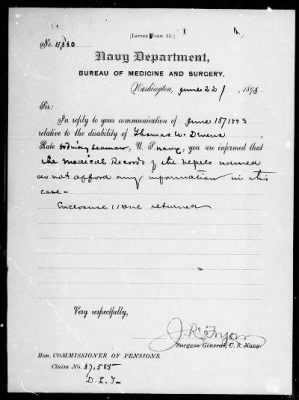 [LETTER FORM 15.]
No. 11360
Navy Department,
BUREAU OF MEDICINE AND SURGERY,
Washington, June 22, 1893
Sir:
In reply to your communication of June 15/1893
relative to the disability of Thomas W.
Rate Ordinary seaman, U. S. Navy, you are informed that
the Medical Records of the vessels named
do not afford any information in this
case.
Enclosure returned
Very respectfully,
J. R. Tryon
Surgeon General, U. S. Navy.
Hon. COMMISSIONER OF PENSIONS.
Claim No. 37,555